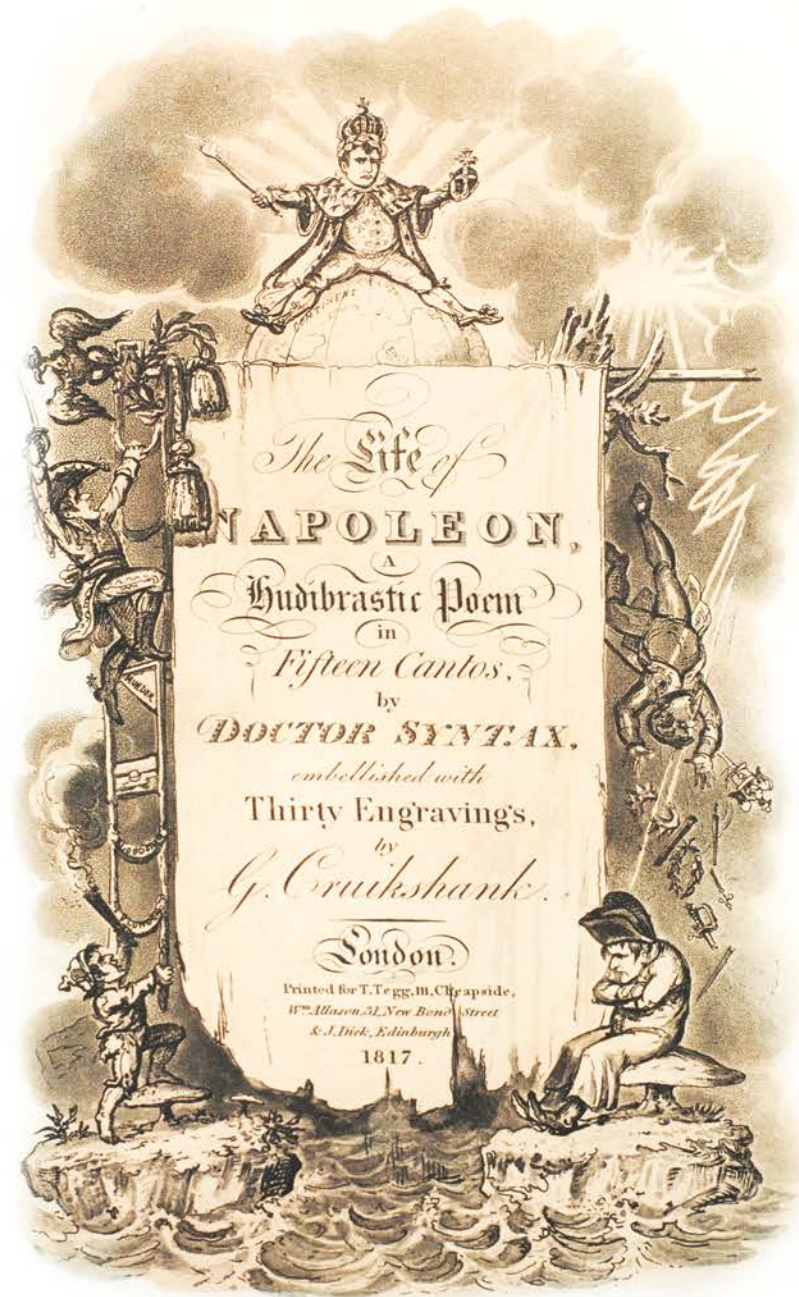 CONTINENT
The Life of
NAPOLEON,
A
Hudibrastic Poem
in
Fifteen Cantos,
by
DOCTOR SYNTAX,
embellished with
Thirty Engravings,
by
G. Cruikshank.
London.
Printed for T. Tegg, 111, Cheapside,
Wm. Allason, 31, New Bond Street
& J. Dick, Edinburgh
1817.
MURDER